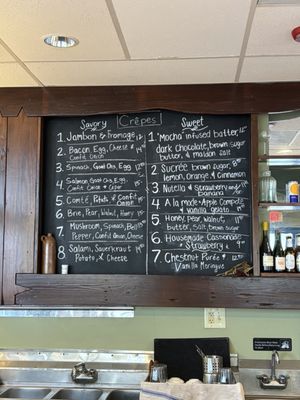 Crêpes
Savory
1. Jambon & fromage 12
2. Bacon, Egg, Cheese
Confit Onion
3. Spinach, Goat Chz, Egg 12
4. Salmon, Goat Chz, Egg
Confit Onion & Caper
5. Comté, Potato & Confit
Onion
6. Brie, Pear, Walnut, Honey
7. Mushroom, Spinach, Bell
Pepper, Confit Onion Cheese
8. Salami, Sauerkraut
Potato & Cheese
Sweet
1. "Mocha" infused batter,
dark Chocolate, brown
butter, & maldon salt
2. Sucrée brown sugar, 8
lemon, Orange & Cinnamon
3. Nutella & Strawberry and/or
banana
4. A la mode- Apple Compote
& vanilla gelato
5. Honey, Pear, Walnut,
butter, brown sugar
6. Housemade Cassonade
& Strawberry 9
7. Chestnut Purée & 12
Vanilla Meringue